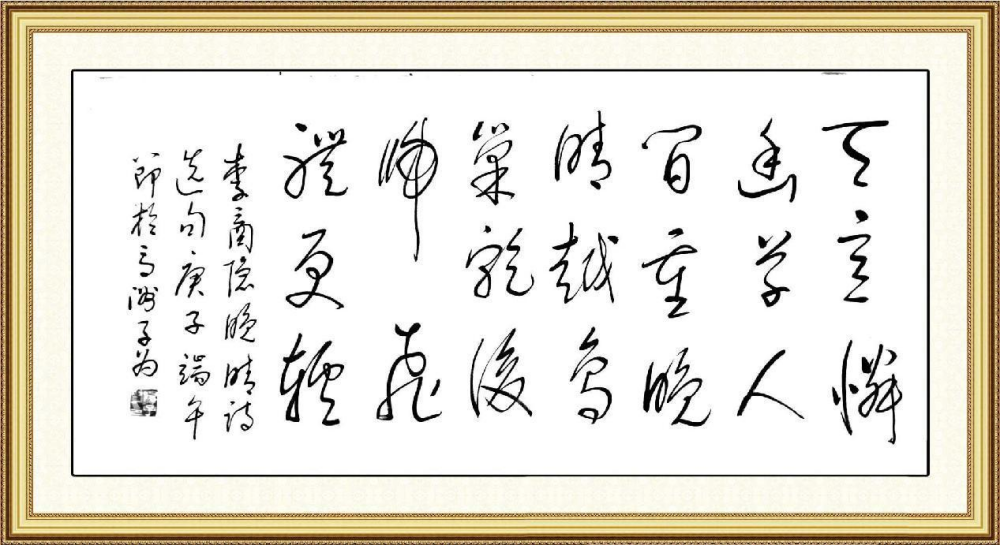 天意憐
幽草人
間重晚
晴越鳥
巢乾後
歸飛
體更輕
李商隐晚晴詩
选句庚子端午
節於高洲子为